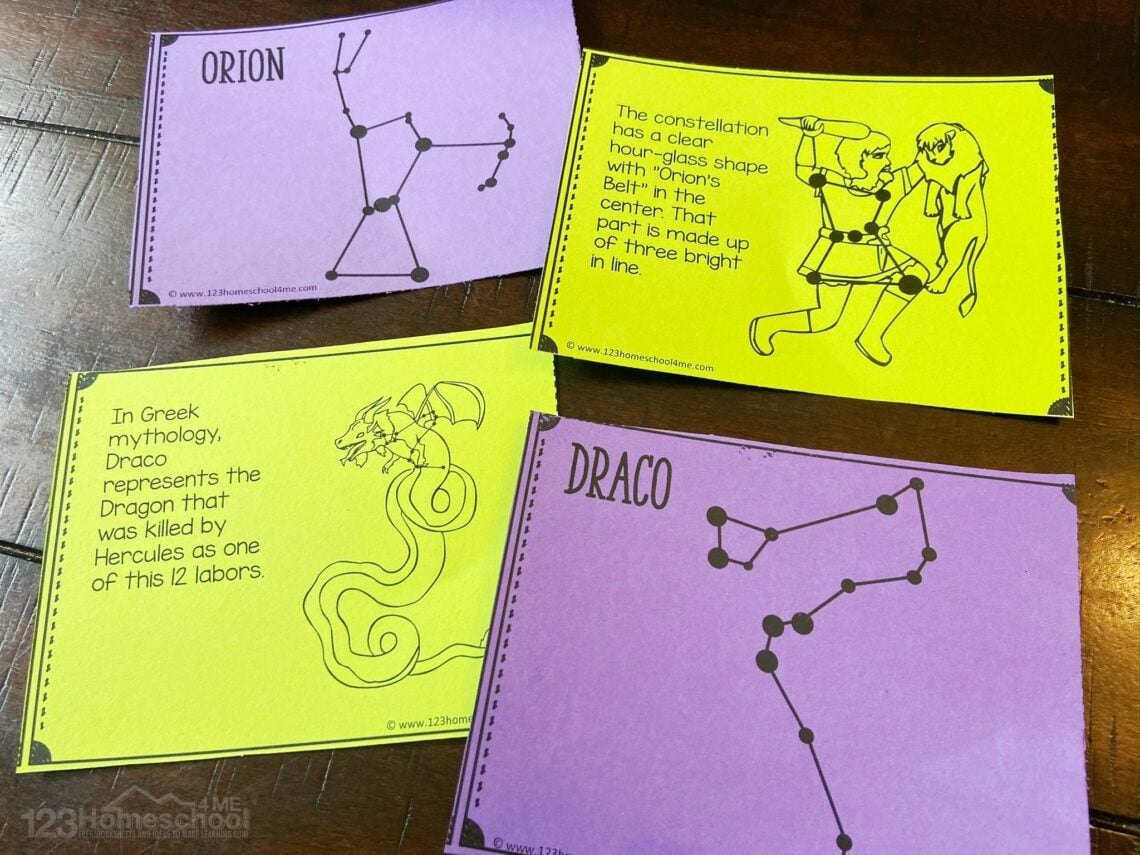 ORION
© www.123homeschool4me.com
The constellation
has a clear
hour-glass shape
with "Orion's
Belt" in the
center. That
part is made up
of three bright
in line.
© www.123homeschool4me.com
In Greek
mythology,
Draco
represents the
Dragon that
was killed by
Hercules as one
of this 12 labors.
© www.123home
DRACO
© www.123h
123Homeschool
4 ME
FREE WORKSHEETS AND IDEAS TO MAKE LEARNING FUN!